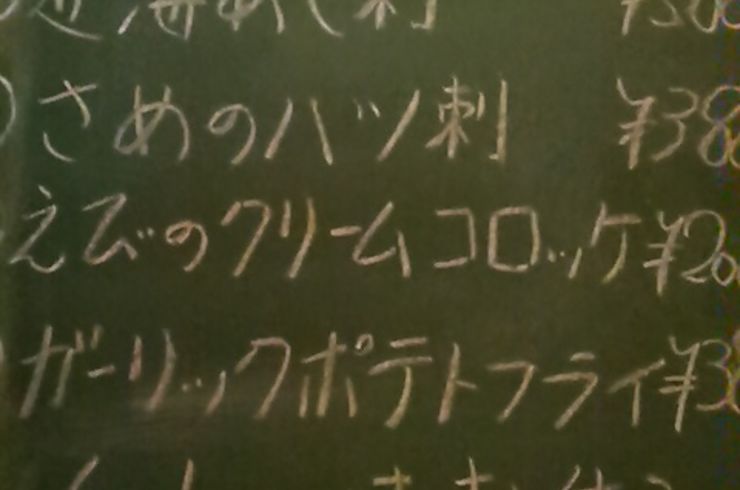 さめのハツ刺 ¥38
えびのクリームコロッケ ¥20
ガーリックポテトフライ ¥3